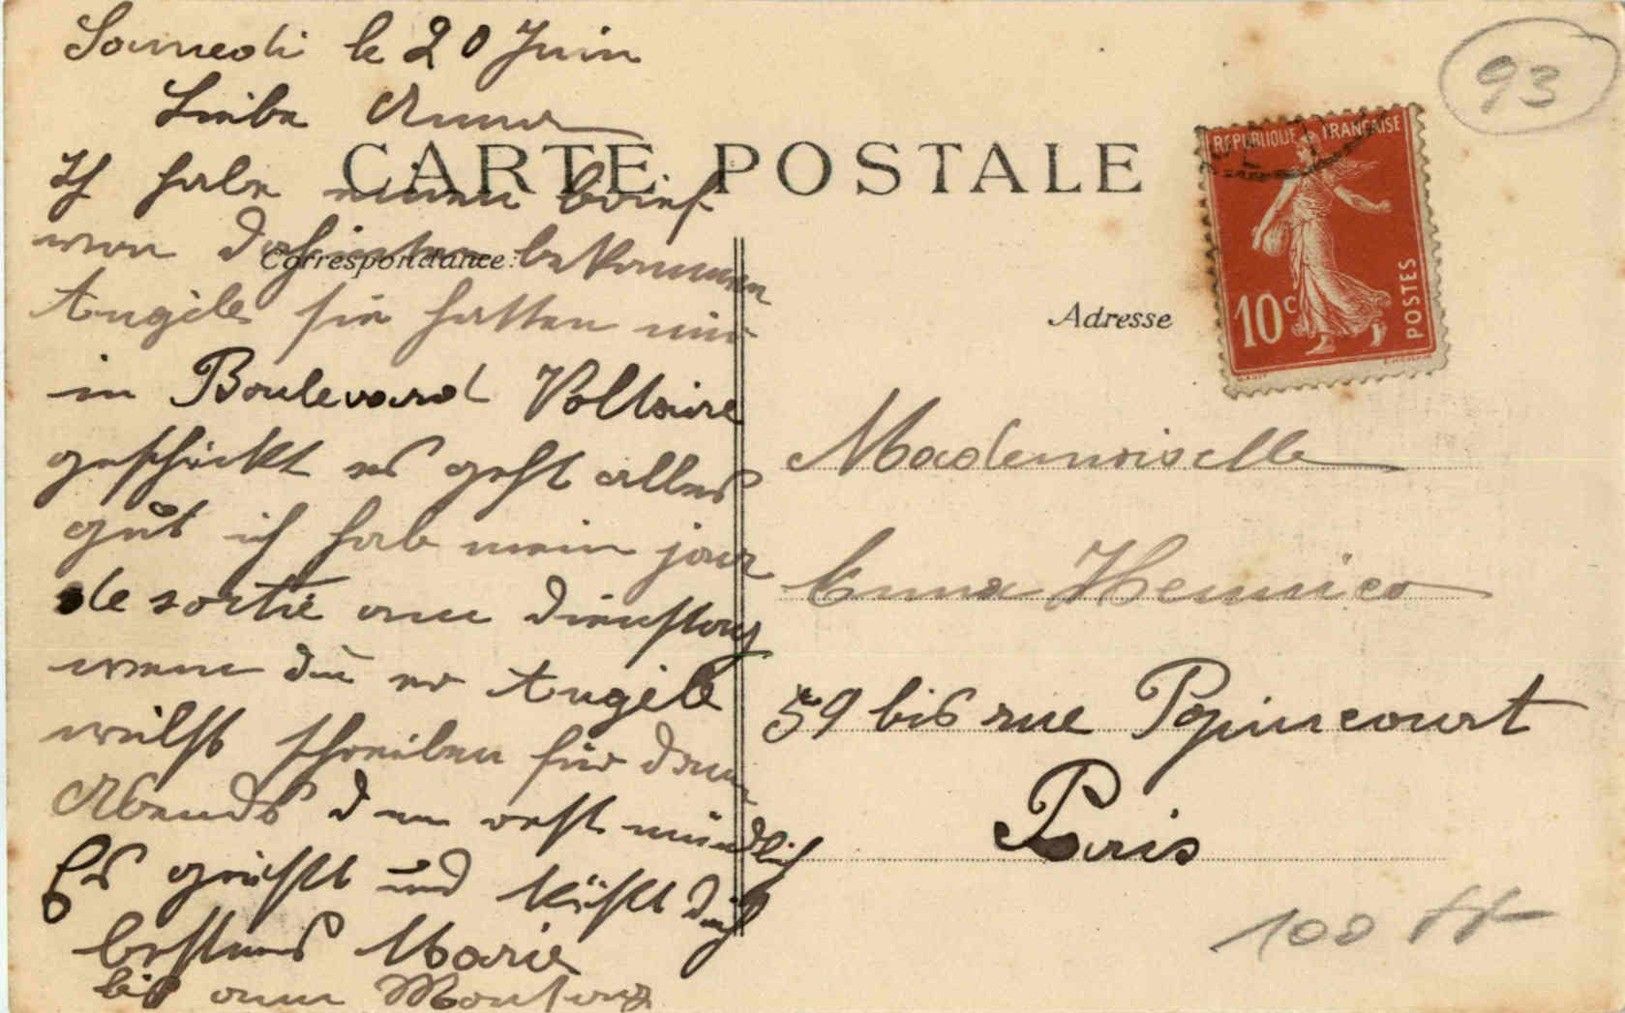 Samedi le 20 Juin
Liebe Anna
CARTE POSTALE
Ich habe einen brief
von bekommen
Correspondance:
Angèle sie hatten mir
in Boulevard Voltaire
geschückt es geht alles
gut ich hab mein jour
de sortie am dienstag
wenn du er Angèle
wilst schreiben für den
Abends den rest mündlich
Es grüßt und küßt dich
bestens Marie
bis am Montag
Adresse
Mademoiselle
Anna
59 bis rue Popincourt
Paris
REPUBLIQUE FRANÇAISE
10c
POSTES
93
100 ff